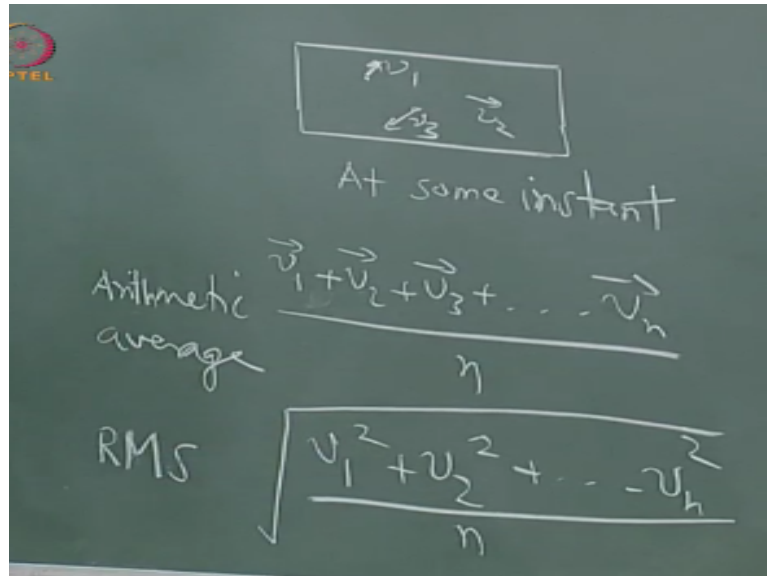 PTEL
v₁
v₃ v⃗₂
At some instant
Arithmetic average
v⃗₁ + v⃗₂ + v⃗₃ + . . . - v⃗ₙ
n
RMS √
v₁² + v₂² + . . . - vₙ²
n